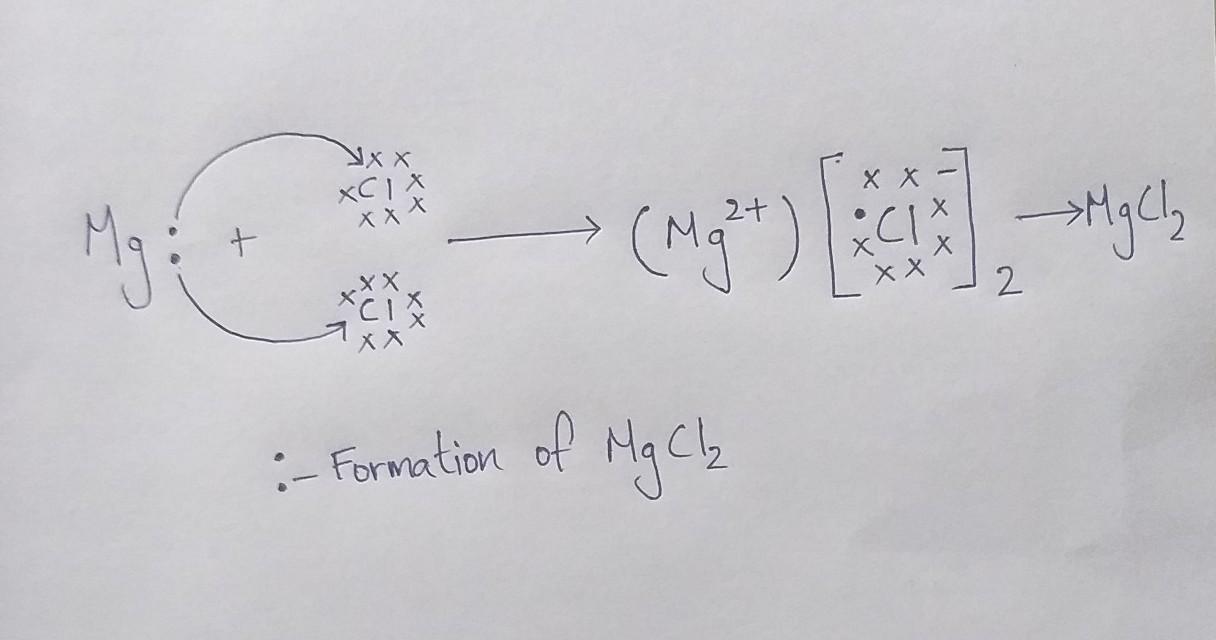 Mg : + ˣCl ⟶ (Mg²⁺) [•Cl⁻]₂ → MgCl₂
Cl
:- Formation of MgCl₂